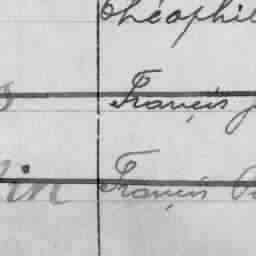 Théophil
s François J
lin François